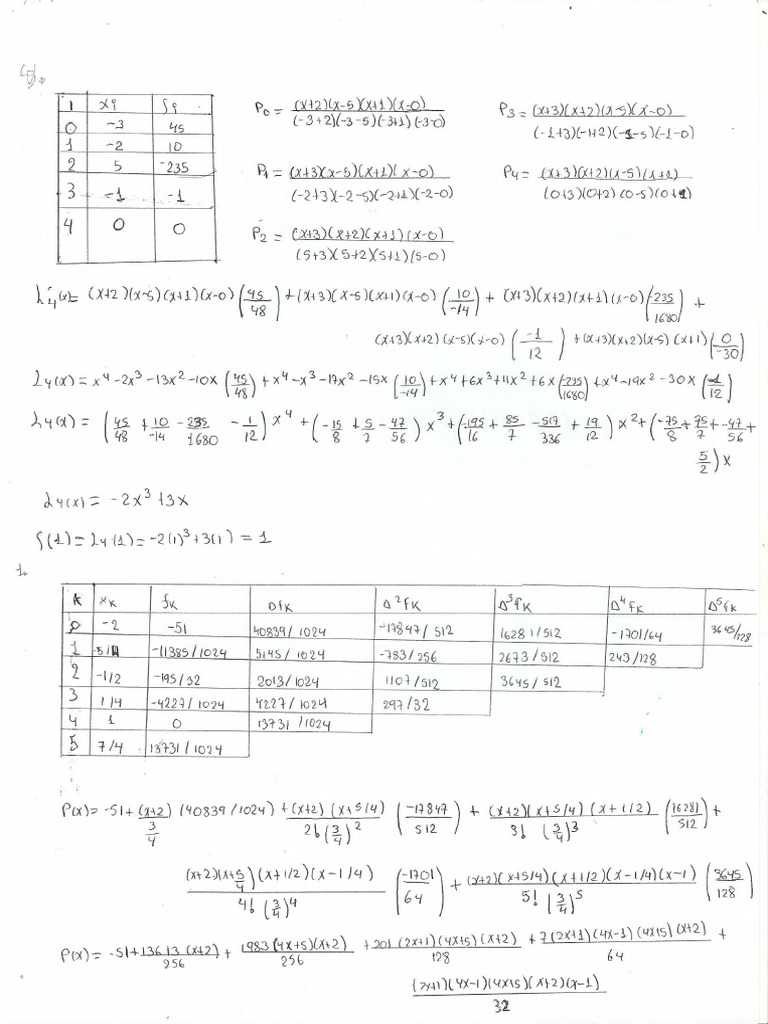 i xi fi
0 -3 45
1 -2 10
2 5 -235
3 -1 -1
4 0 0
P0 = (x+2)(x-5)(x+1)(x-0) / (-3+2)(-3-5)(-3+1)(-3-0)
P1 = (x+3)(x-5)(x+1)(x-0) / (-2+3)(-2-5)(-2+1)(-2-0)
P2 = (x+3)(x+2)(x+1)(x-0) / (5+3)(5+2)(5+1)(5-0)
P3 = (x+3)(x+2)(x-5)(x-0) / (-1+3)(-1+2)(-1-5)(-1-0)
P4 = (x+3)(x+2)(x-5)(x+1) / (0+3)(0+2)(0-5)(0+1)
L4(x) = (x+2)(x-5)(x+1)(x-0)(45/48) + (x+3)(x-5)(x+1)(x-0)(10/-14) + (x+3)(x+2)(x+1)(x-0)(-235/1680) +
(x+3)(x+2)(x-5)(x-0)(-1/12) + (x+3)(x+2)(x-5)(x+1)(0/-30)
L4(x) = x^4-2x^3-13x^2-10x(45/48) + x^4-x^3-17x^2-15x(10/-14) + x^4+6x^3+11x^2+6x(-235/1680) + x^4-19x^2-30x(-1/12)
L4(x) = (45/48 + 10/-14 - 235/1680 - 1/12)x^4 + (-15/8 + 5/7 - 47/56)x^3 + (-195/16 + 85/7 - 517/336 + 19/12)x^2 + (-75/8 + 75/7 + -47/56 +
5/2)x
L4(x) = -2x^3+3x
f(1) = L4(1) = -2(1)^3+3(1) = 1
1.
k xk fk Dfk Δ^2fk Δ^3fk Δ^4fk Δ^5fk
0 -2 -51 40839/1024 -17847/512 16281/512 -1701/64 3645/128
1 -11385/1024 5145/1024 -783/256 2673/512 243/128
2 -1/2 -195/32 2013/1024 1107/512 3645/512
3 1/4 -4227/1024 4227/1024 297/32
4 1 0 13731/1024
5 7/4 13731/1024
P(x) = -51+(x+2)/(3/4) (40839/1024) + (x+2)(x+5/4)/2!(3/4)^2 (-17847/512) + (x+2)(x+5/4)(x+1/2)/3!(3/4)^3 (16281/512) +
(x+2)(x+5/4)(x+1/2)(x-1/4)/4!(3/4)^4 (-1701/64) + (x+2)(x+5/4)(x+1/2)(x-1/4)(x-1)/5!(3/4)^5 (3645/128)
P(x) = -51+13613(x+2)/256 + 1983(4x+5)(x+2)/256 + 201(2x+1)(4x+5)(x+2)/128 + 7(2x+1)(4x-1)(4x+5)(x+2)/64 +
(2x+1)(4x-1)(4x+5)(x+2)(x-1)/32